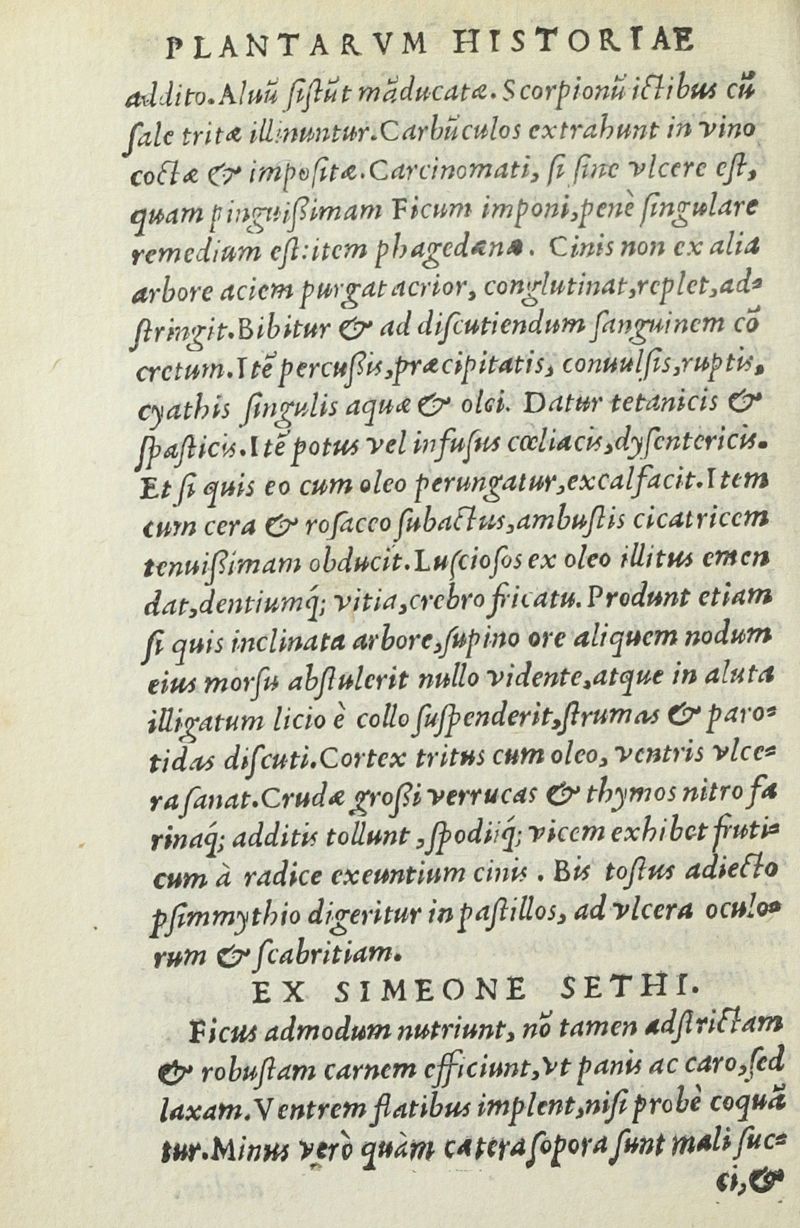 PLANTARVM HISTORIAE
addito. Aluũ ſiſtũt mãducatæ. Scorpionũ ictibus cũ
ſale tritæ illinuntur. Carbũculos extrahunt in vino
coctæ & impoſitæ. Carcinomati, ſi ſine vlcere eſt,
quam pinguißimam Ficum imponi, penè ſingulare
remedium eſt: item phagedænæ. Cinis non ex alia
arbore aciem purgat acrior, conglutinat, replet, ad-
ſtringit. Bibitur & ad diſcutiendum ſanguinem cõ
cretum. Itẽ percußis, præcipitatis, conuulſis, ruptis,
cyathis ſingulis aquæ & olei. Datur tetanicis &
ſpaſticis. Itẽ potus vel infuſus cœliacis, dyſentericis.
Et ſi quis eo cum oleo perungatur, excalfacit. Item
cum cera & roſaceo ſubactus, ambuſtis cicatricem
tenuißimam obducit. Luſcioſos ex oleo illitus emen
dat, dentiumq́; vitia, crebro fricatu. Produnt etiam
ſi quis inclinata arbore, ſupino ore aliquem nodum
eius morſu abſtulerit nullo vidente, atque in aluta
illigatum licio è collo ſuſpenderit, ſtrumas & paro-
tidas diſcuti. Cortex tritus cum oleo, ventris vlce-
ra ſanat. Crudæ großi verrucas & thymos nitro fa
rinaq́; additis tollunt, ſpodijq́; vicem exhibet fruti-
cum à radice exeuntium cinis. Bis toſtus adiecto
pſimmythio digeritur in paſtillos, ad vlcera oculo-
rum & ſcabritiam.
EX SIMEONE SETHI.
Ficus admodum nutriunt, nõ tamen adſtrictam
& robuſtam carnem efficiunt, vt panis ac caro, ſed
laxam. Ventrem flatibus implent, niſi probè coquã
tur. Minus verò quàm cætera ſopora ſunt mali ſuc-
ci, &